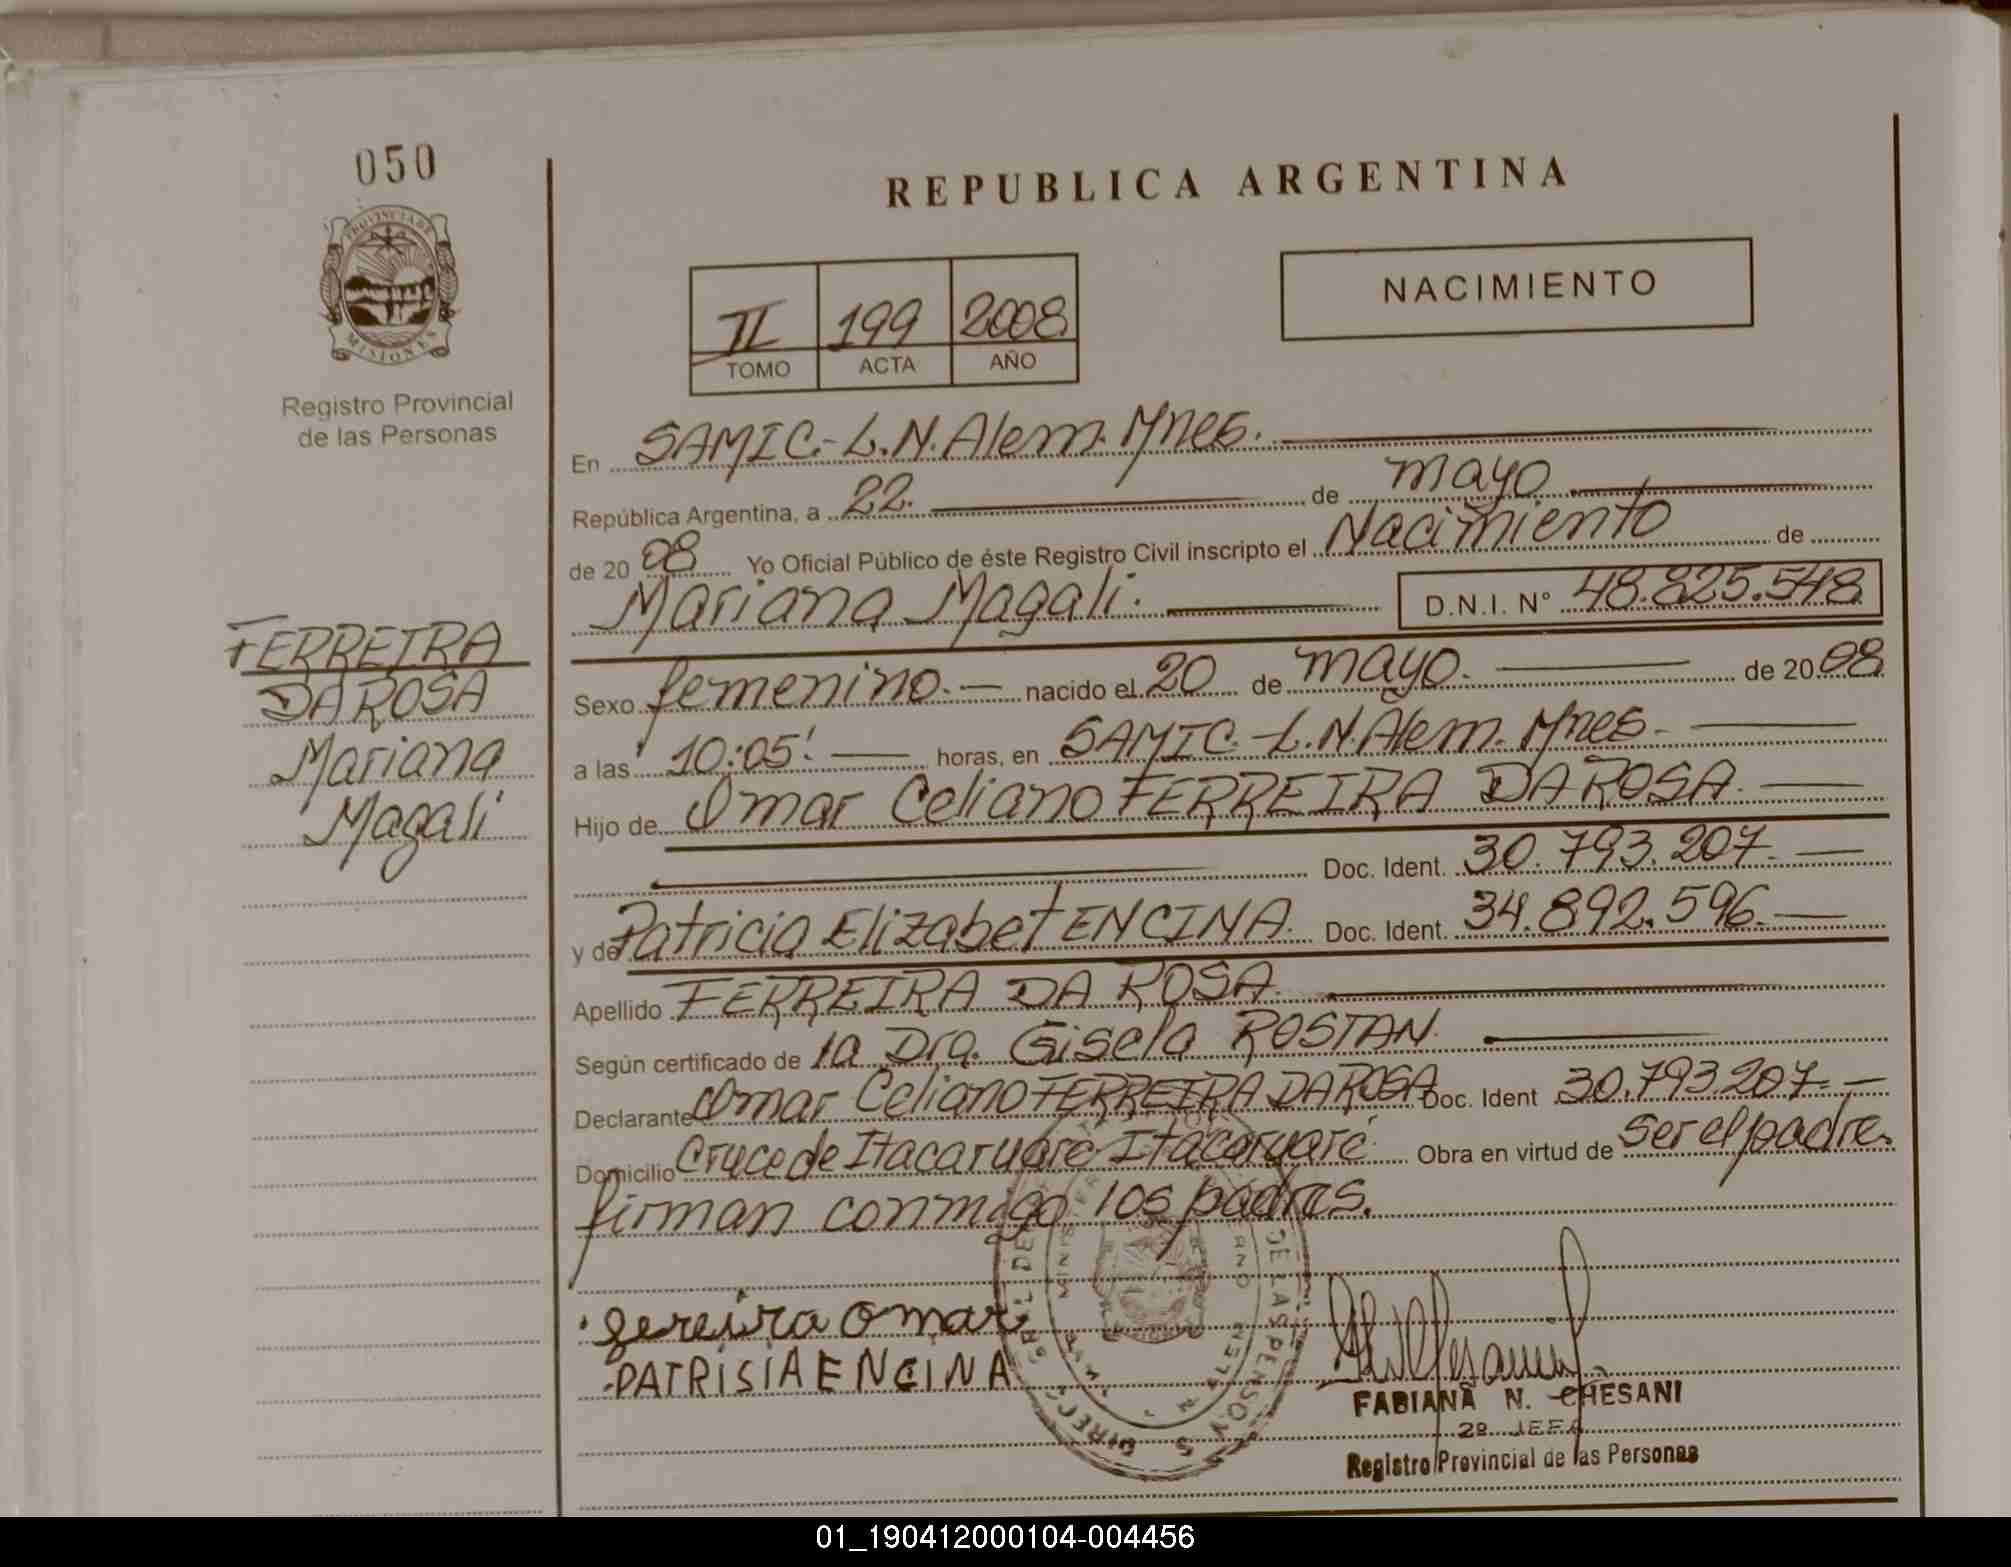 050
PROVINCIA DE
MISIONES
Registro Provincial
de las Personas
FERREIRA
DA ROSA
Mariana
Magali
REPUBLICA ARGENTINA
II 199 2008
TOMO ACTA AÑO
NACIMIENTO
En SAMIC.- L.N. Alem. Mnes.
República Argentina, a 22. de mayo
de 20 08 Yo Oficial Público de éste Registro Civil inscripto el Nacimiento de
Mariana Magali. D.N.I. N° 48.825.548
Sexo femenino. — nacido el 20 de mayo. de 20 08
a las 10:05' — horas, en SAMIC. L.N. Alem. Mnes.
Hijo de Omar Celiano FERREIRA DA ROSA.
Doc. Ident. 30.793.207. —
y de Patricia Elizabet ENCINA. Doc. Ident. 34.892.596. —
Apellido FERREIRA DA ROSA.
Según certificado de la Dra. Gisela ROSTAN.
Declarante Omar Celiano FERREIRA DA ROSA Doc. Ident 30.793.207. —
Domicilio Cruce de Itacaruaré Itacaruaré. Obra en virtud de ser el padre.
firman conmigo los padres.
gereira omar
PATRISIA ENCINA
FABIANA N. CHESANI
2º JEFA
Registro Provincial de las Personas
01_190412000104-004456